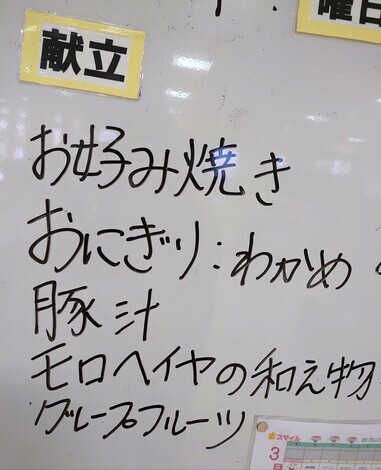 曜日
献立
お好み焼き
おにぎり：わかめ
豚汁
モロヘイヤの和え物
グループフルーツ
スマイル
3
月